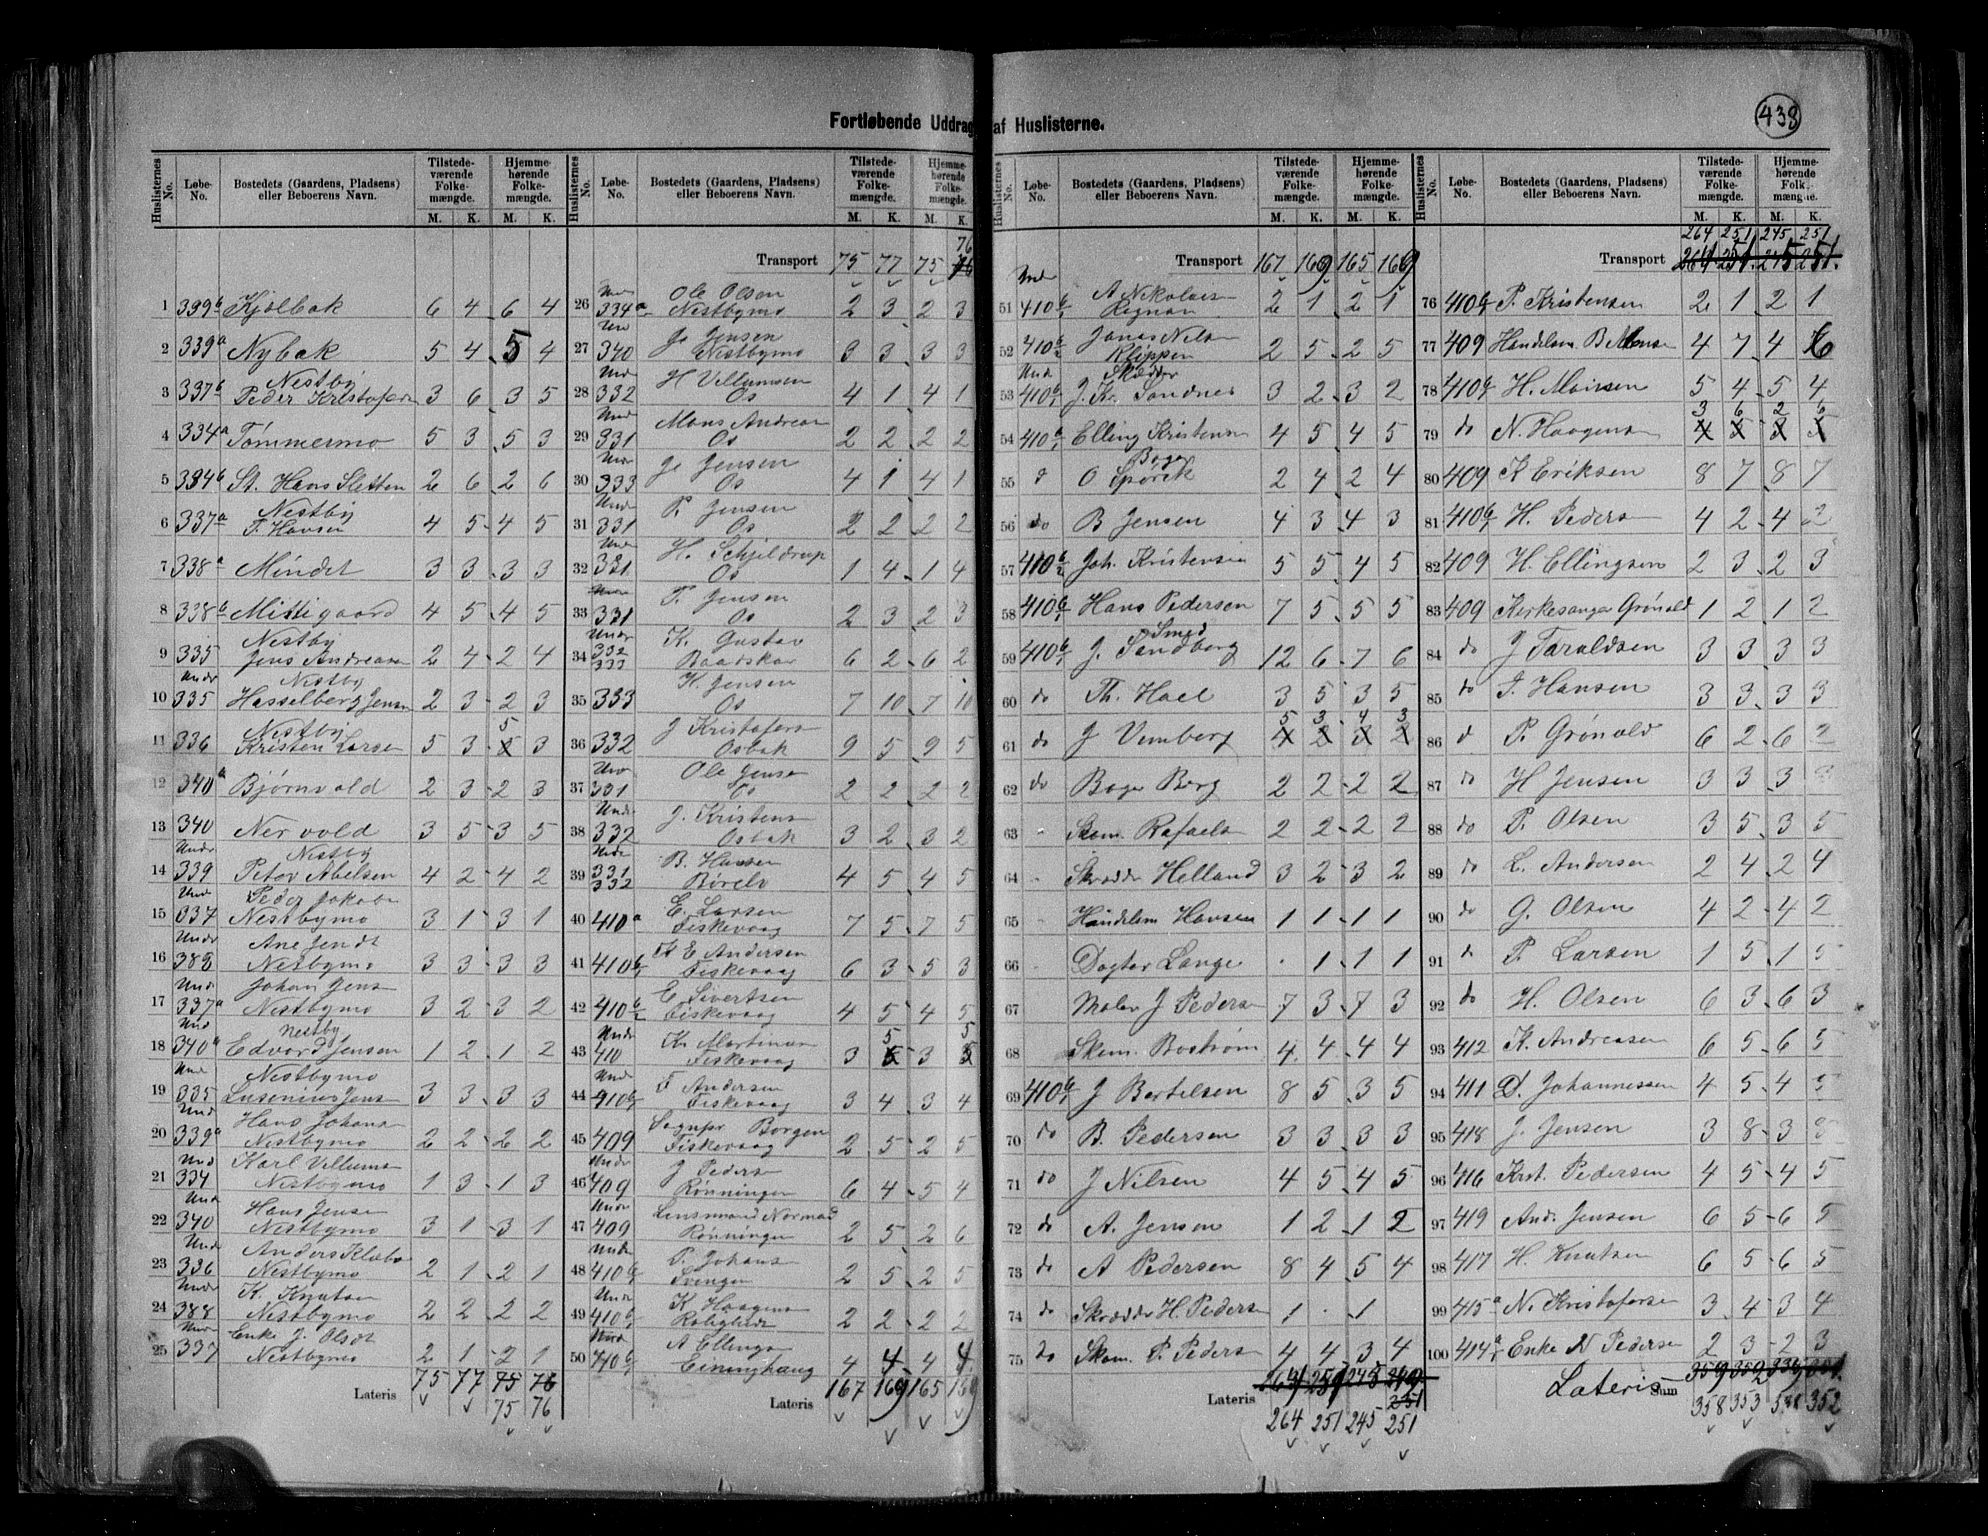 438
Fortløbende Uddrag af Huslisterne.
Huslisternes No. Løbe-No. Bostedets (Gaardens, Pladsens) eller Beboerens Navn. Tilstedeværende Folkemængde. M. K. Hjemmehørende Folkemængde. M. K.
1 339b Kjølbak 6 4 6 4
2 339a Nybak 5 4 5 4
3 337b Nestby Peder Kristofers 3 6 3 5
4 334a Tømmermo 5 3 5 3
5 334b St. Hans Sletten 2 6 2 6
6 337a Nestby T. Hansen 4 5 4 5
7 338a Mindet 3 3 3 3
8 338b Mittigaard 4 5 4 5
9 335 Nestby Jens Andreasen 2 4 2 4
10 Undr 335 Nestby Hasselberg Jensen 2 3 2 3
11 336 Nestby Kristen Larsen 5 3 5 3
12 340a Bjørnvold 2 3 2 3
13 340 Nervold 3 5 3 5
14 Undr 339 Nestby Peter Abelsen 4 2 4 2
15 Und 337 Peder Jakobs Nestbymo 3 1 3 1
16 Undr 388 Ane Jendt Nestbymo 3 3 3 3
17 Und 337a Johan Jens Nestbymo 3 2 3 2
18 Und 340a Nestby Edvard Jensen 1 2 1 2
19 Und 335 Nestbymo Lusenius Jens 3 3 3 3
20 Und 339a Hans Johans Nestbymo 2 2 2 2
21 Und 334 Karl Villums Nestbymo 1 3 1 3
22 Und 340 Hans Jensen Nestbymo 3 1 3 1
23 Und 336 Anders Klæbo Nestbymo 2 1 2 1
24 Undr 388 K. Knutsen Nestbymo 2 2 2 2
25 Undr 337 Enke J. Olsdt Nestbymo 2 1 2 1
75 77 75 76
75 76
Transport 75 77 75 76
26 Und 334a Ole Olsen Nestbymo 2 3 2 3
27 Und 340 Js Jensen Nestbymo 3 3 3 3
28 Und 332 H Villumsen Os 4 1 4 1
29 Und 331 Mons Andreas Os 2 2 2 2
30 Und 333 Js Jensen Os 4 1 4 1
31 Und 331 P. Jensen Os 2 2 2 2
32 Und 321 H. Schjeldrup Os 1 4 1 4
33 331 P. Jensen Os 2 3 2 3
34 Undr 332 333 K. Gustav Baadskar 6 2 6 2
35 333 K. Jensen Os 7 10 7 10
36 332 J Kristofers Osbak 9 5 9 5
37 Und 331 Ole Jens Os 2 2 2 2
38 Und 332 J. Kristens Osbak 3 2 3 2
39 Undr 331 332 B. Hansen Børelv 4 5 4 5
40 410a E. Larsen Fiskevaag 7 5 7 5
41 410b/1 E Andersen Fiskevaag 6 3 5 3
42 410b/2 E Sivertsen Fiskevaag 4 5 4 5
43 Undr 410 Kr Martinus Fiskevaag 3 5 3 5
44 Und 410b/1 F Andersen Fiskevaag 3 4 3 4
45 409 Sognepr Borgen Fiskevaag 2 5 2 5
46 Undr 409 J Peders Rønningen 6 4 5 4
47 Undr 409 Lensmand Normad Rønningen 2 5 2 6
48 Und 410b/1 P. Johans Svingen 2 5 2 5
49 Und 410b/1 K Haagens Rolighed 2 2 2 2
50 Und 410b/1 A Ellings Einringhaug 4 4 4 4
Lateris 167 169 165 169
Transport 167 169 165 169
51 Und 410b/1 A Nikolais Rognan 2 1 2 1
52 410b/2 Jonas Nils Klippen 2 5 2 5
53 Und 410b/1 Skrædder J. Kr. Sandnes 3 2 3 2
54 410b/1 Elling Kristens 4 5 4 5
55 Bager O Spørck 2 4 2 4
56 do B Jensen 4 3 4 3
57 410b/2 Joh. Kristensen 5 5 4 5
58 410b/1 Hans Pedersen 7 5 5 5
59 410b/1 Smed J. Sandberg 12 6 7 6
60 do Th. Hoel 3 5 3 5
61 do J Vemberg 5 3 4 3
62 do Bager Berg 2 2 2 2
63 Skom. Rafaels 2 2 2 2
64 Skrædder Helland 3 2 3 2
65 Handelsm Hansen 1 1 1 1
66 Dogter Lange . 1 1 1
67 Maler J Peders 7 3 7 3
68 Skom. Bostrøm 4 4 4 4
69 410b/1 J Bertelsen 8 5 3 5
70 do B. Pedersen 3 3 3 3
71 do J Nilsen 4 5 4 5
72 do A. Jensen 1 2 1 2
73 do A Pedersen 8 4 5 4
74 do Skrædder H. Peders 1 . 1
75 do Skom. P. Peders 4 4 3 4
Lateris 264 251 245 251
264 251 245 251
Transport 264 251 245 251
76 410b/1 P. Kristensen 2 1 2 1
77 409 Handelsm B Mons 4 7 4 6
78 410b/1 H. Monsen 5 4 5 4
79 do N. Haagens 3 6 2 6
80 409 K Eriksen 8 7 8 7
81 410b/1 H. Peders 4 2 4 2
82 409 H. Ellingsen 2 3 2 3
83 409 Kirkesanger Grønold 1 2 1 2
84 do J Taraldsen 3 3 3 3
85 do J. Hansen 3 3 3 3
86 d P. Grønold 6 2 6 2
87 do H Jensen 3 3 3 3
88 do P. Olsen 3 5 3 5
89 do L. Andersen 2 4 2 4
90 do G. Olsen 4 2 4 2
91 do P. Larsen 1 5 1 5
92 do H. Olsen 6 3 6 3
93 412 K. Andreasen 6 5 6 5
94 411 D. Johannessen 4 5 4 5
95 418 J. Jensen 3 8 3 8
96 416 Krst. Pedersen 4 5 4 5
97 419 Andr. Jensen 6 5 6 5
98 417 H. Knutsen 6 5 6 5
99 415a N. Kristofersen 3 4 3 4
100 414a Enke N Pedersen 2 3 2 3
Lateris Sum 359 352 339 351
358 353 338 352